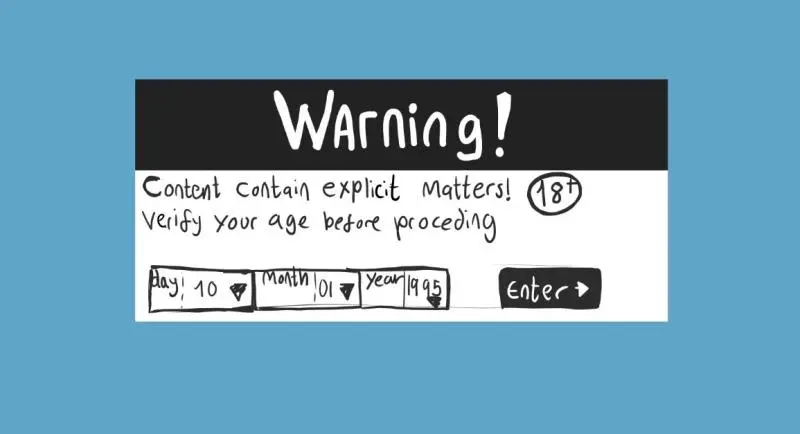 Warning!
Content contain explicit Matters! 18+
Verify your age before proceding
day 10 Month 01 year 1995 Enter